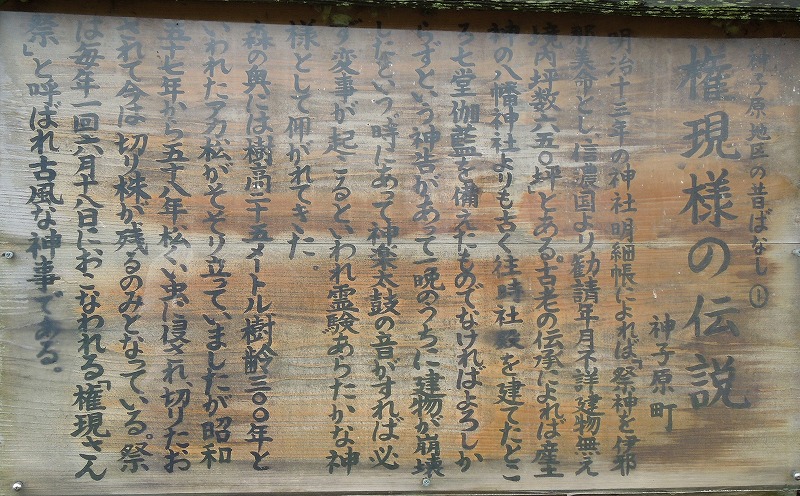 神子原地区の昔ばなし①
権現様の伝説
神子原町
明治十三年の神社明細帳によれば「祭神を伊邪
那美命とし、信濃国より勧請年月不詳建物無え
境内坪数六五〇坪」とある。古老の伝承によれば産土
神の八幡神社よりも古く往時社殿を建てたとこ
ろ七堂伽藍を備えたものでなければよろしか
らずという神告があって一晩のうちに建物が崩壊
したという。時にあって神楽太鼓の音がすれば必
ず変事が起こるといわれ霊験あらたかな神
様として仰がれてきた。
森の奥には樹高二十五メートル樹齢三〇〇年と
いわれたアカ松がそそり立って、いましたが昭和
五十七年から五十八年、松くい虫に侵され、切りたお
されて今は切り株が残るのみとなっている。祭
は毎年一回六月十八日におこなわれる「権現さん
祭」と呼ばれ古風な神事である。